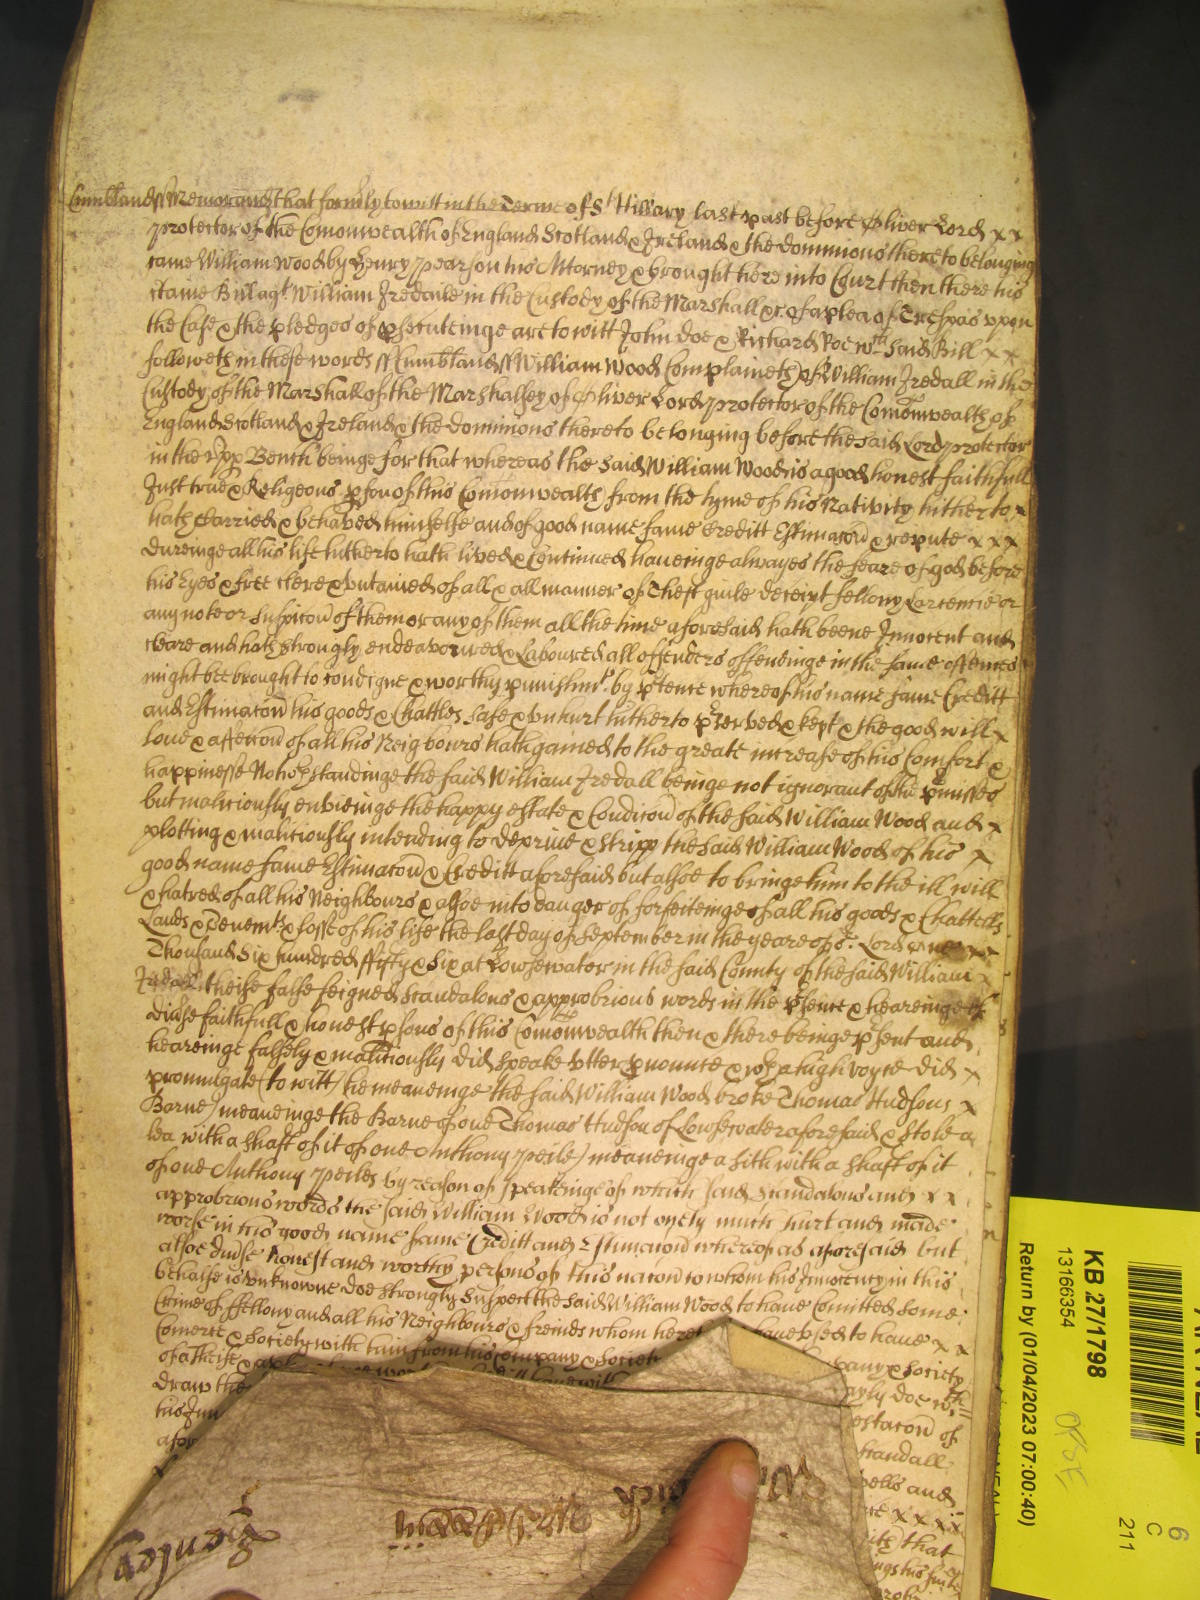 Cumbland ss Memorand that formly to witt in the Terme of St Hillary last past before Oliver Lord x x
protector of the Comonwealth of England Scotland & Ireland & the dominions thereto belonging
came William Wood by Henry Pearson his Attorney & brought here into Court then there his
certaine Bill agt William Iredall in the Custody of the Marshall &c of a plea of Trespas upon
the Case & the pledges of psecuteinge are to witt John Doe & Richard Roe wch said Bill x x
followeth in these words ss Cumbland ss William Wood Complaineth of William Iredall in the
Custody of the Marshall of the Marshalsey of Oliver Lord protector of the Comonwealth of
England Scotland & Ireland & the dominions thereto belonging before the said Lord protector
in the upp Bench beinge for that whereas the said William Wood is a good honest faithfull
Just true & Religeous pson of this Comonwealth from the tyme of his Nativity hitherto x
hath Carried & behaved himselfe and of good name fame Creditt Estimacon & repute x x x
dureinge all his life hitherto hath lived & Continued haveinge alwayes the feare of god before
his Eyes & free clere & untainted of all & all manner of Theft guile deceipt fellony Larcenie or
any note or Suspicon of them or any of them all the time aforesaid hath beene Innocent and
cleare and hath strongly endeavoured & Laboured all offenders offendinge in the same offences
might bee brought to condigne & worthy punishmt by ptence whereof his name fame Creditt
and Estimacon his goods & Chattles safe & unhurt hitherto pserved & kept & the good will x
love & affeccon of all his Neigbours hath gained to the great increase of his Comfort &
happinesse Notwthstandinge the said William Iredall beinge not ignorant of the pmisses
but maliciously envieinge the happy estate & Condicon of the said William Wood and x
plotting & malitiously intending to deprive & stripp the said William Wood of his x
good name fame Estimacon & Creditt aforesaid but alsoe to bringe him to the ill will
& hatred of all his Neighbours & alsoe into danger of forfeiteinge of all his goods & Chattells
Lands & Tenemts & losse of his life the last day of September in the yeare of or Lord one x x
Thousand Six hundred ffifty & six at Lowsewater in the said County of the said William x
Iredall theise false feigned Scandalous & approbrious words in the psence & heareinge of
divse faithfull & honest psons of this Comonwealth then & there beinge psent and
heareinge falsely & malitiously did speake utter pnounce & wth a high voyce did x
promulgate (to witt) he meaneinge the said William Wood broke Thomas Hudsons x
Barne) meaneinge the Barne of one Thomas Hudson of Lowsewater aforesaid & stole a
lea with a shaft of it of one Anthony Peile) meaneinge a sith with a shaft of it
of one Anthony Peiles by reason of speakeinge of which said Scandalous and x x
approbrious words the said William Wood is not onely much hurt and made
worse in his good name fame Creditt and Estimacon whereof as aforesaid but
alsoe divse honest and worthy persons of this nacon to whom his Innocency in this
behalfe is unknowne doe strongly Suspect the said William Wood to have Comitted some
Crime of ffellony and all his Neighbours & freinds whom heret have used to have x x
Comerce & Society with him from his Company & Societ pany & society
of a Theife &
draw the ayly doe wth
his Inn ostacon of
afor candall
bells and
x x x x
that
KB 27/1798
13166354
Return by (01/04/2023 07:00:40)
6
C
211